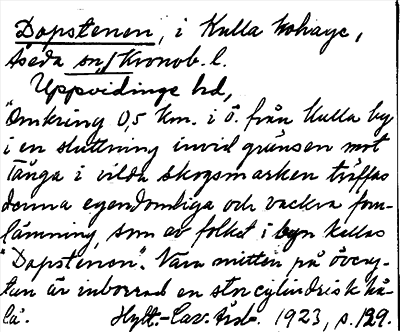 Dopstenen, i Kulla kohage,
Åseda sn, Kronob. l.
Uppvidinge hd,
"Omkring 0,5 Km. i ö. från Kulla by
i en sluttning invid gränsen mot
Tånga i vilda skogsmarken träffas
denna egendomliga och vackra forn-
lämning, som av folket i byn kallas
"Dopstenen". Nära mitten på överg-
tan är inborrad en stor cylindrisk hå-
la. Hylt.-Cav. Årsb. 1923, s. 129.